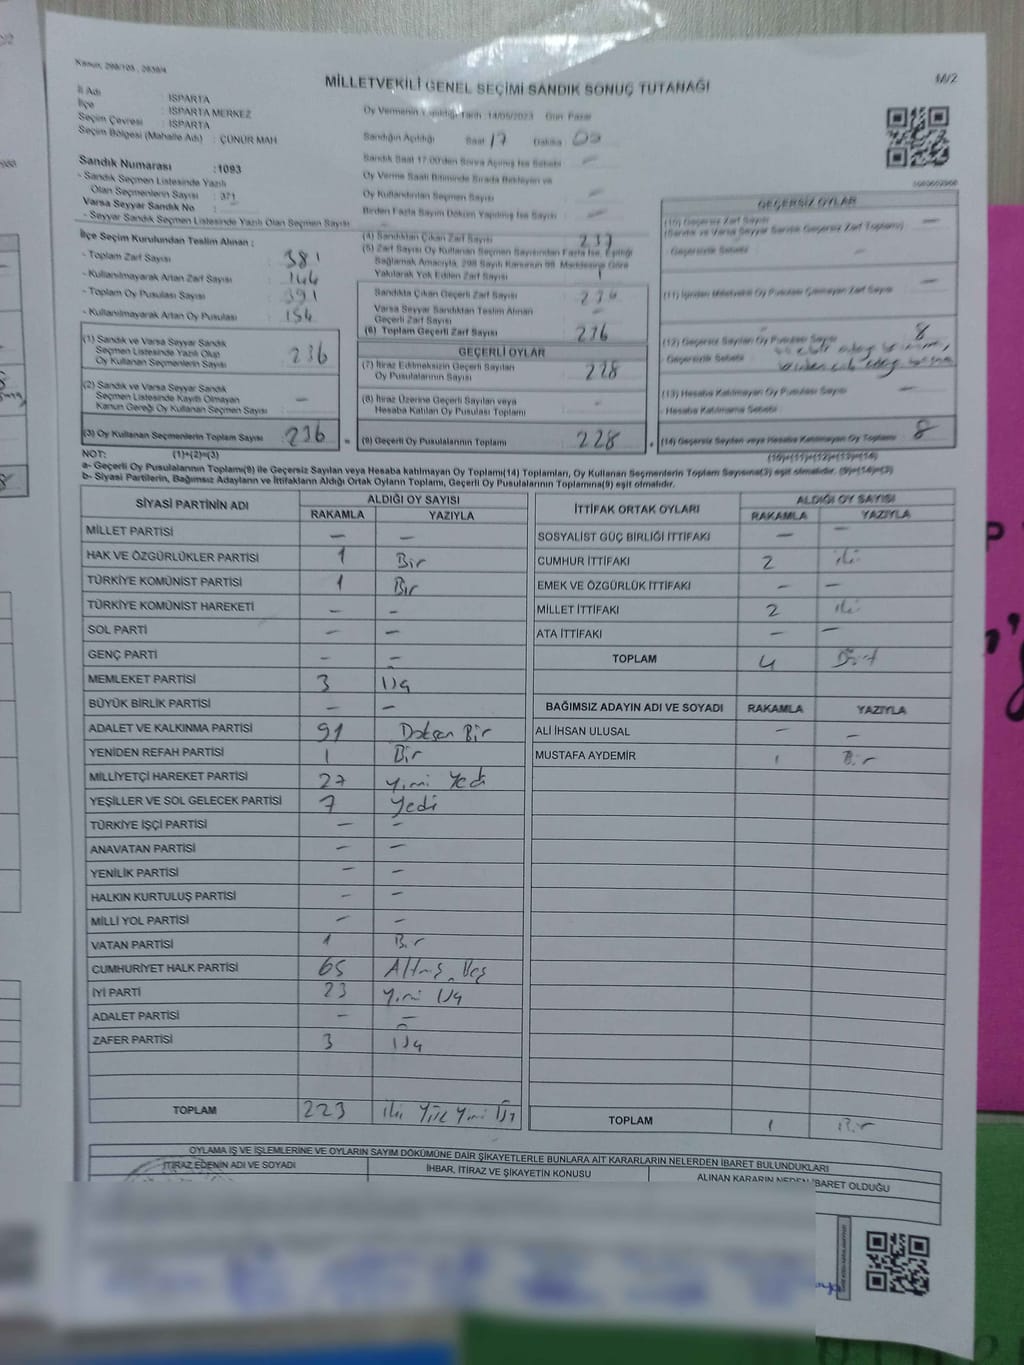 Kanun, 298/105 , 2839/4
M/2
MİLLETVEKİLİ GENEL SEÇİMİ SANDIK SONUÇ TUTANAĞI
İl Adı : ISPARTA
İlçe : ISPARTA MERKEZ
Seçim Çevresi : ISPARTA
Seçim Bölgesi (Mahalle Adı) : ÇÜNÜR MAH
Sandık Numarası :1093
- Sandık Seçmen Listesinde Yazılı
Olan Seçmenlerin Sayısı : 371
Varsa Seyyar Sandık No
- Seyyar Sandık Seçmen Listesinde Yazılı Olan Seçmen Sayısı
Oy Vermenin Yapıldığı Tarih :14/05/2023 Gün: Pazar
Sandığın Açıldığı Saat 17 Dakika 00
Sandık Saat 17:00'den Sonra Açılmış İse Sebebi –
Oy Verme Saati Bitiminde Sırada Bekleyen ve
Oy Kullandırılan Seçmen Sayısı –
Birden Fazla Sayım Döküm Yapılmış İse Sayısı –
İlçe Seçim Kurulundan Teslim Alınan :
- Toplam Zarf Sayısı : 381
- Kullanılmayarak Artan Zarf Sayısı : 144
- Toplam Oy Pusulası Sayısı : 391
- Kullanılmayarak Artan Oy Pusulası : 154
(1) Sandık ve Varsa Seyyar Sandık
Seçmen Listesinde Yazılı Olup
Oy Kullanan Seçmenlerin Sayısı : 236
(2) Sandık ve Varsa Seyyar Sandık
Seçmen Listesinde Kayıtlı Olmayan
Kanun Gereği Oy Kullanan Seçmen Sayısı : –
(3) Oy Kullanan Seçmenlerin Toplam Sayısı : 236
(4) Sandıktan Çıkan Zarf Sayısı 237
(5) Zarf Sayısı Oy Kullanan Seçmen Sayısından Fazla İse, Eşitliği
Sağlamak Amacıyla, 298 Sayılı Kanunun 98. Maddesine Göre
Yakılarak Yok Edilen Zarf Sayısı 1
Sandıkta Çıkan Geçerli Zarf Sayısı : 236
Varsa Seyyar Sandıktan Teslim Alınan
Geçerli Zarf Sayısı –
(6) Toplam Geçerli Zarf Sayısı : 236
GEÇERLİ OYLAR
(7) İtiraz Edilmeksizin Geçerli Sayılan
Oy Pusulalarının Sayısı : 228
(8) İtiraz Üzerine Geçerli Sayılan veya
Hesaba Katılan Oy Pusulası Toplamı : –
= (9) Geçerli Oy Pusulalarının Toplamı : 228
GEÇERSİZ OYLAR
(10) Geçersiz Zarf Sayısı –
(Sandık ve Varsa Seyyar Sandık Geçersiz Zarf Toplamı)
- Geçersizlik Sebebi : –
(11) İçinden Milletvekili Oy Pusulası Çıkmayan Zarf Sayısı –
(12) Geçersiz Sayılan Oy Pusulası Sayısı 8
- Geçersizlik Sebebi
(13) Hesaba Katılmayan Oy Pusulası Sayısı –
- Hesaba Katılmama Sebebi
+ (14) Geçersiz Sayılan veya Hesaba Katılmayan Oy Toplamı : 8
NOT: (1)+(2)=(3) (10)+(11)+(12)+(13)=(14)
a- Geçerli Oy Pusulalarının Toplamı(9) ile Geçersiz Sayılan veya Hesaba katılmayan Oy Toplamı(14) Toplamları, Oy Kullanan Seçmenlerin Toplam Sayısına(3) eşit olmalıdır. (9)+(14)=(3)
b- Siyasi Partilerin, Bağımsız Adayların ve İttifakların Aldığı Ortak Oyların Toplamı, Geçerli Oy Pusulalarının Toplamına(9) eşit olmalıdır.
SİYASİ PARTİNİN ADI ALDIĞI OY SAYISI
RAKAMLA YAZIYLA
MİLLET PARTİSİ – –
HAK VE ÖZGÜRLÜKLER PARTİSİ 1 Bir
TÜRKİYE KOMÜNİST PARTİSİ 1 Bir
TÜRKİYE KOMÜNİST HAREKETİ – –
SOL PARTİ – –
GENÇ PARTİ – –
MEMLEKET PARTİSİ 3 Üç
BÜYÜK BİRLİK PARTİSİ – –
ADALET VE KALKINMA PARTİSİ 91 Doksan Bir
YENİDEN REFAH PARTİSİ 1 Bir
MİLLİYETÇİ HAREKET PARTİSİ 27 Yirmi Yedi
YEŞİLLER VE SOL GELECEK PARTİSİ 7 Yedi
TÜRKİYE İŞÇİ PARTİSİ – –
ANAVATAN PARTİSİ – –
YENİLİK PARTİSİ – –
HALKIN KURTULUŞ PARTİSİ – –
MİLLİ YOL PARTİSİ – –
VATAN PARTİSİ 1 Bir
CUMHURİYET HALK PARTİSİ 65 Altmış Beş
İYİ PARTİ 23 Yirmi Üç
ADALET PARTİSİ – –
ZAFER PARTİSİ 3 Üç
TOPLAM 223 İki Yüz Yirmi Üç
İTTİFAK ORTAK OYLARI ALDIĞI OY SAYISI
RAKAMLA YAZIYLA
SOSYALİST GÜÇ BİRLİĞİ İTTİFAKI – –
CUMHUR İTTİFAKI 2 iki
EMEK VE ÖZGÜRLÜK İTTİFAKI – –
MİLLET İTTİFAKI 2 iki
ATA İTTİFAKI – –
TOPLAM 4 Dört
BAĞIMSIZ ADAYIN ADI VE SOYADI RAKAMLA YAZIYLA
ALİ İHSAN ULUSAL – –
MUSTAFA AYDEMİR 1 Bir
TOPLAM 1 Bir
OYLAMA İŞ VE İŞLEMLERİNE VE OYLARIN SAYIM DÖKÜMÜNE DAİR ŞİKAYETLERLE BUNLARA AİT KARARLARIN NELERDEN İBARET BULUNDUKLARI
İTİRAZ EDENİN ADI VE SOYADI İHBAR, İTİRAZ VE ŞİKAYETİN KONUSU ALINAN KARARIN NEDEN İBARET OLDUĞU